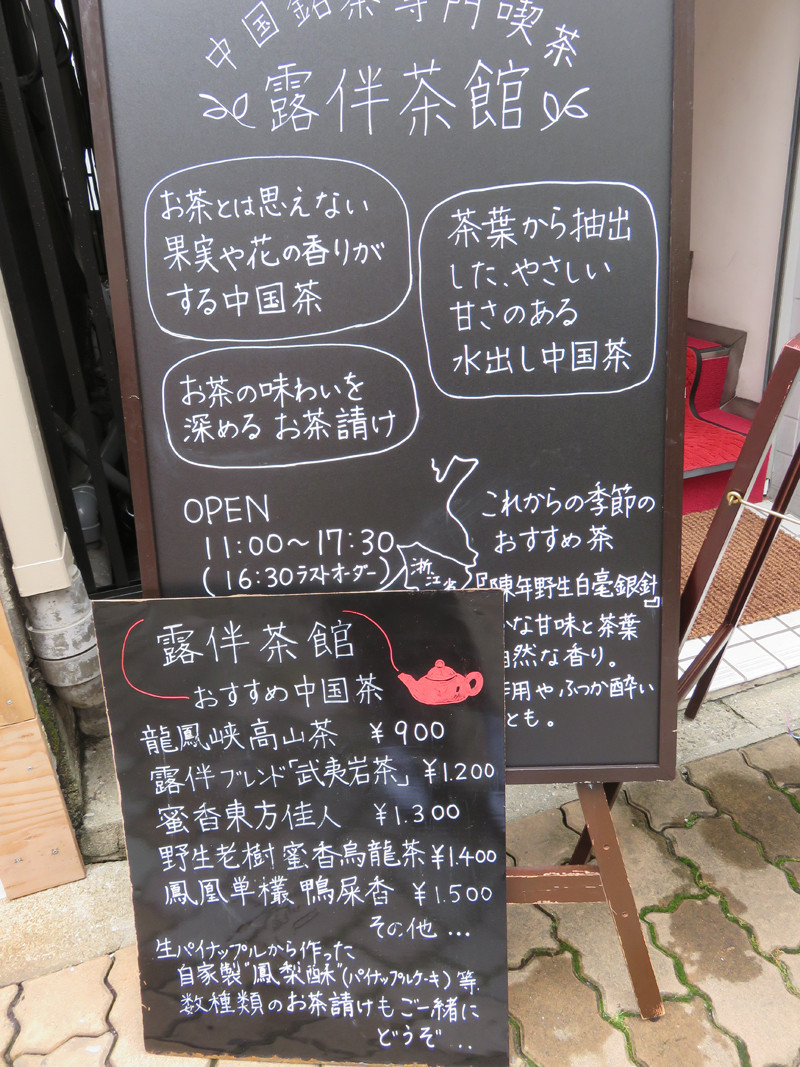 中国銘茶専門喫茶
露伴茶館
お茶とは思えない
果実や花の香りが
する中国茶
茶葉から抽出
した、やさしい
甘さのある
水出し中国茶
お茶の味わいを
深める お茶請け
OPEN
11:00〜17:30
(16:30ラストオーダー)
浙
江省
これからの季節の
おすすめ茶
『陳年野生白毫銀針』
な甘味と茶葉
然な香り。
用や ふつか酔い
とも。
露伴茶館
おすすめ中国茶
龍鳳峡高山茶 ¥900
露伴ブレンド「武夷岩茶」¥1.200
蜜香東方佳人 ¥1.300
野生老樹蜜香烏龍茶¥1.400
鳳凰単欉 鴨屎香 ¥1.500
その他…
生パイナップルから作った
自家製"鳳梨酥"(パイナップルケーキ)等、
数種類のお茶請けもご一緒に
どうぞ…